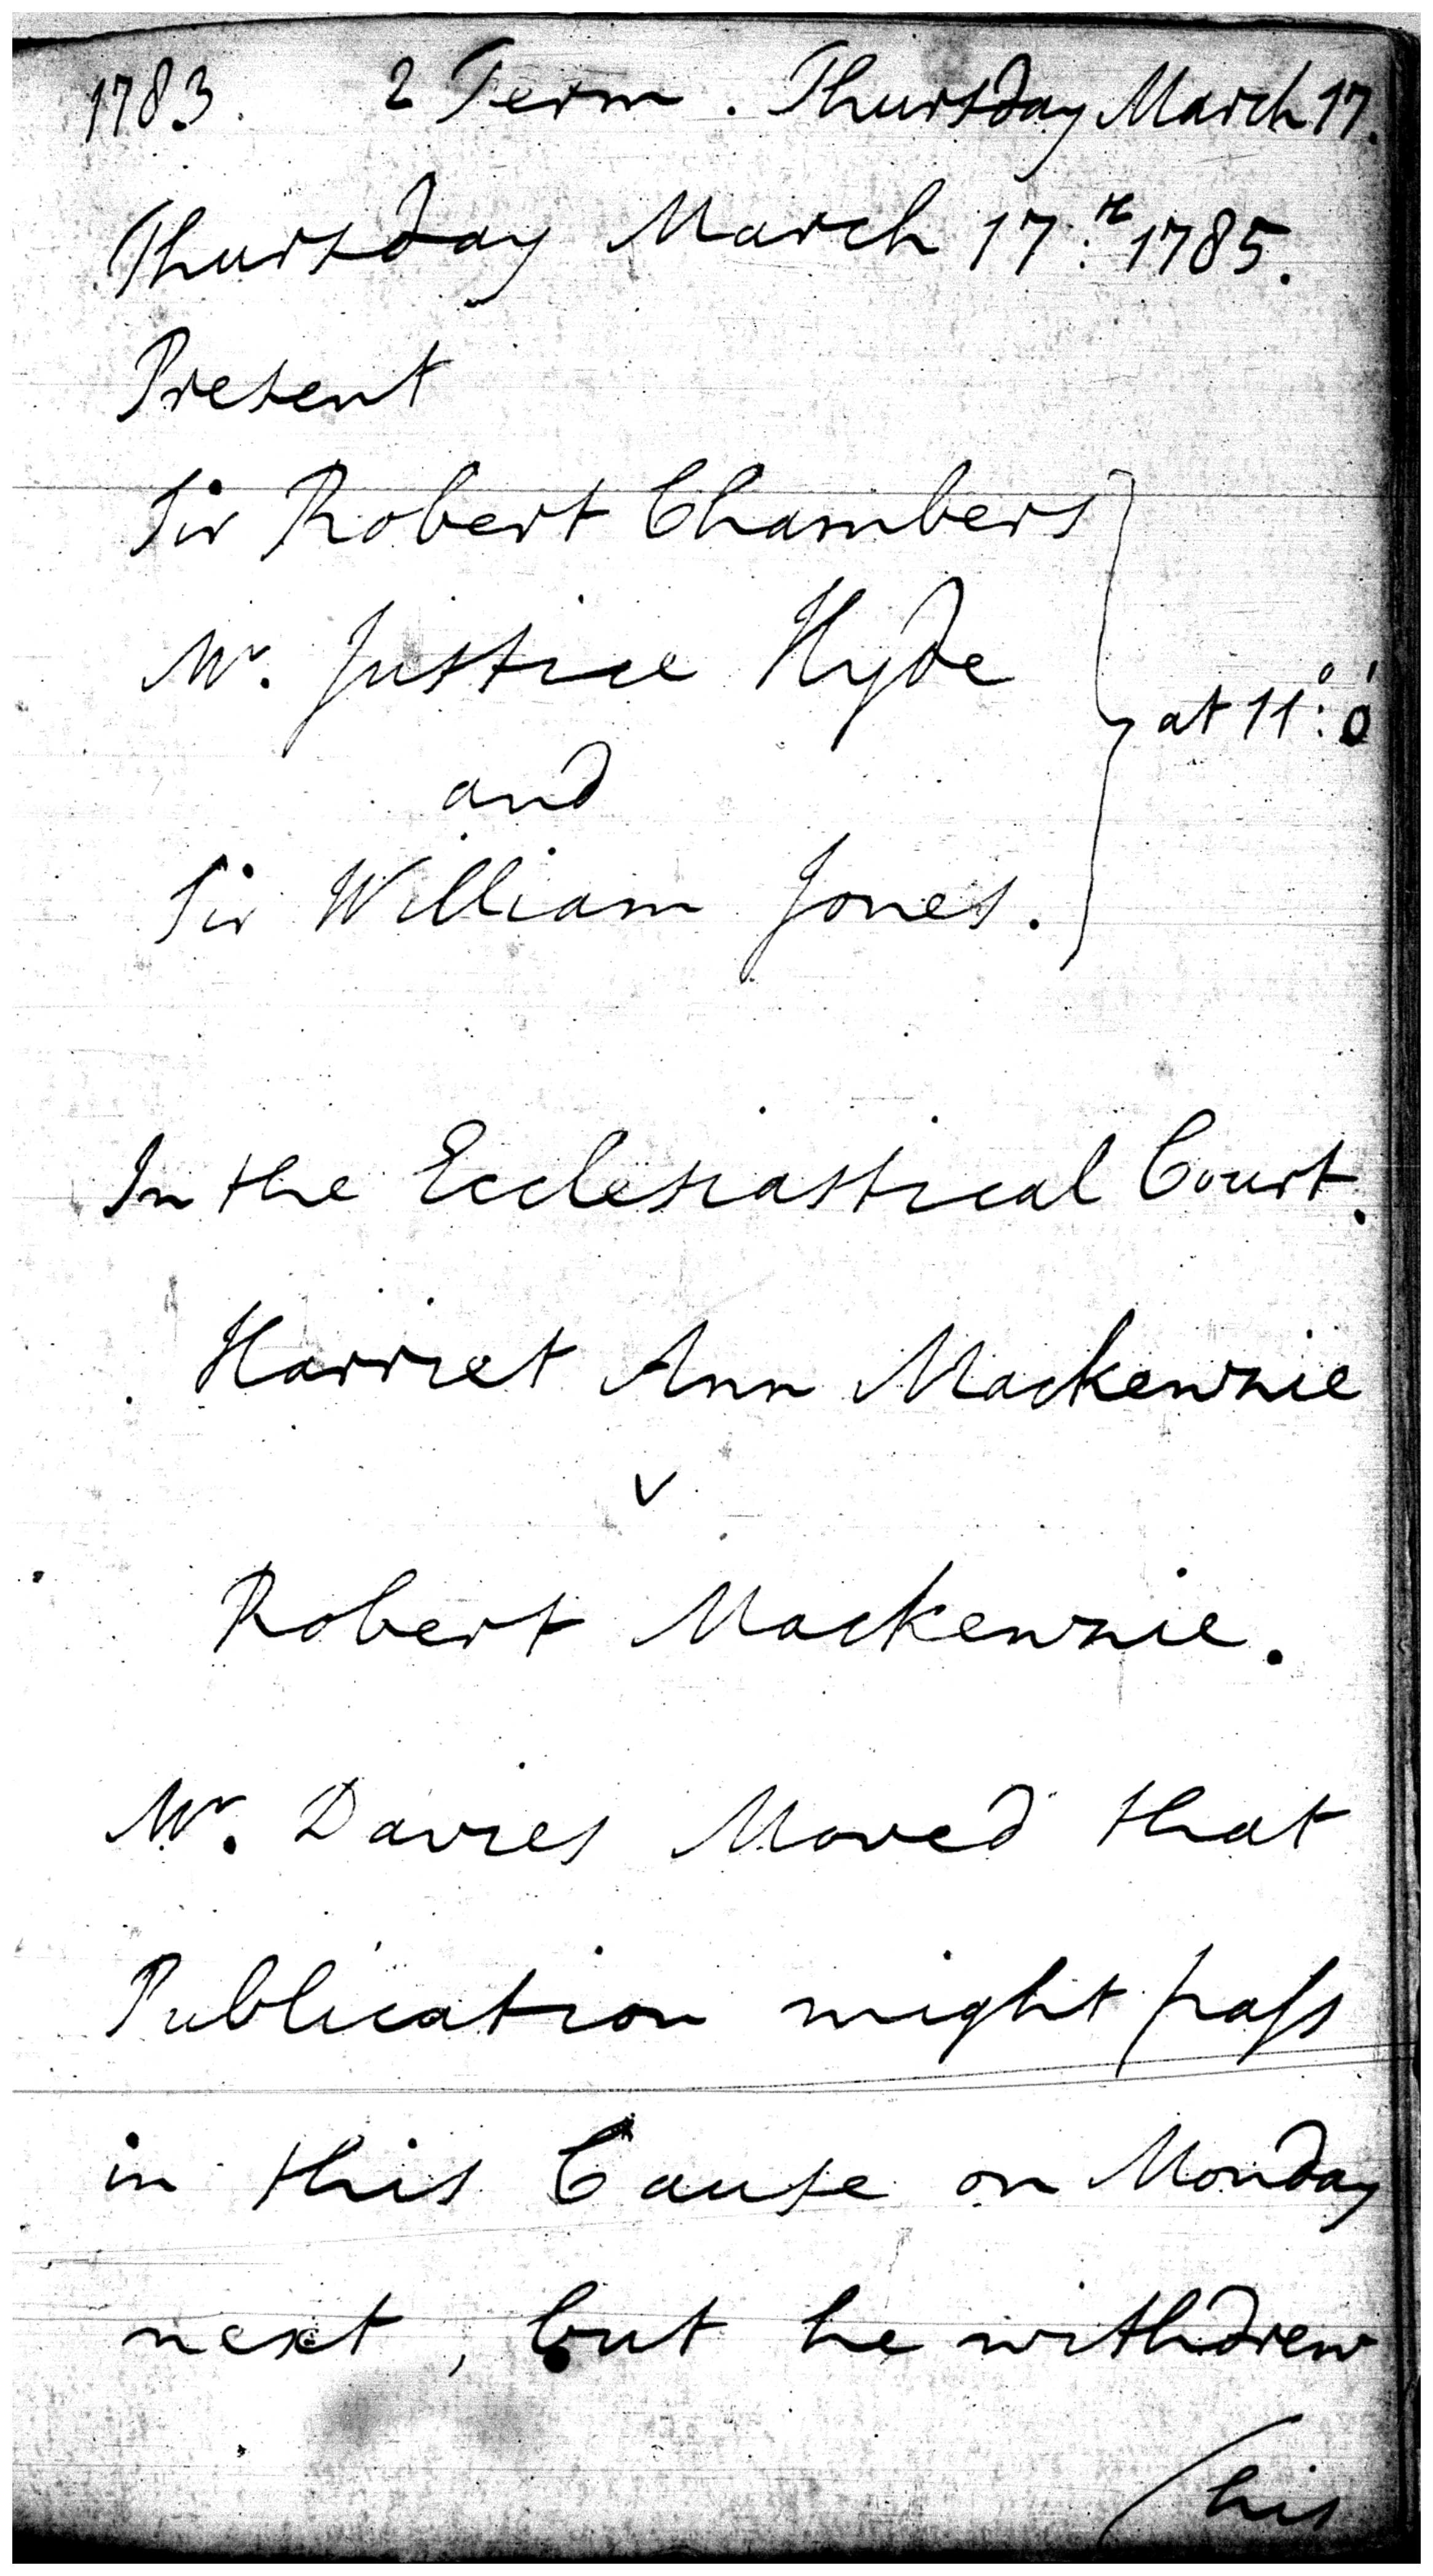 1783. 2 Term. Thursday March 17.
Thursday March 17.th 1785.
Present
Sir Robert Chambers
Mr. Justice Hyde
at 11°: 0'
and
Sir William Jones.
In the Ecclesiastical Court.
Harriet Ann Mackenzie
v
Robert Mackenzie.
Mr. Davies Moved that
Publication might paſs
in this Cause on Monday
next, but he withdrew
/his